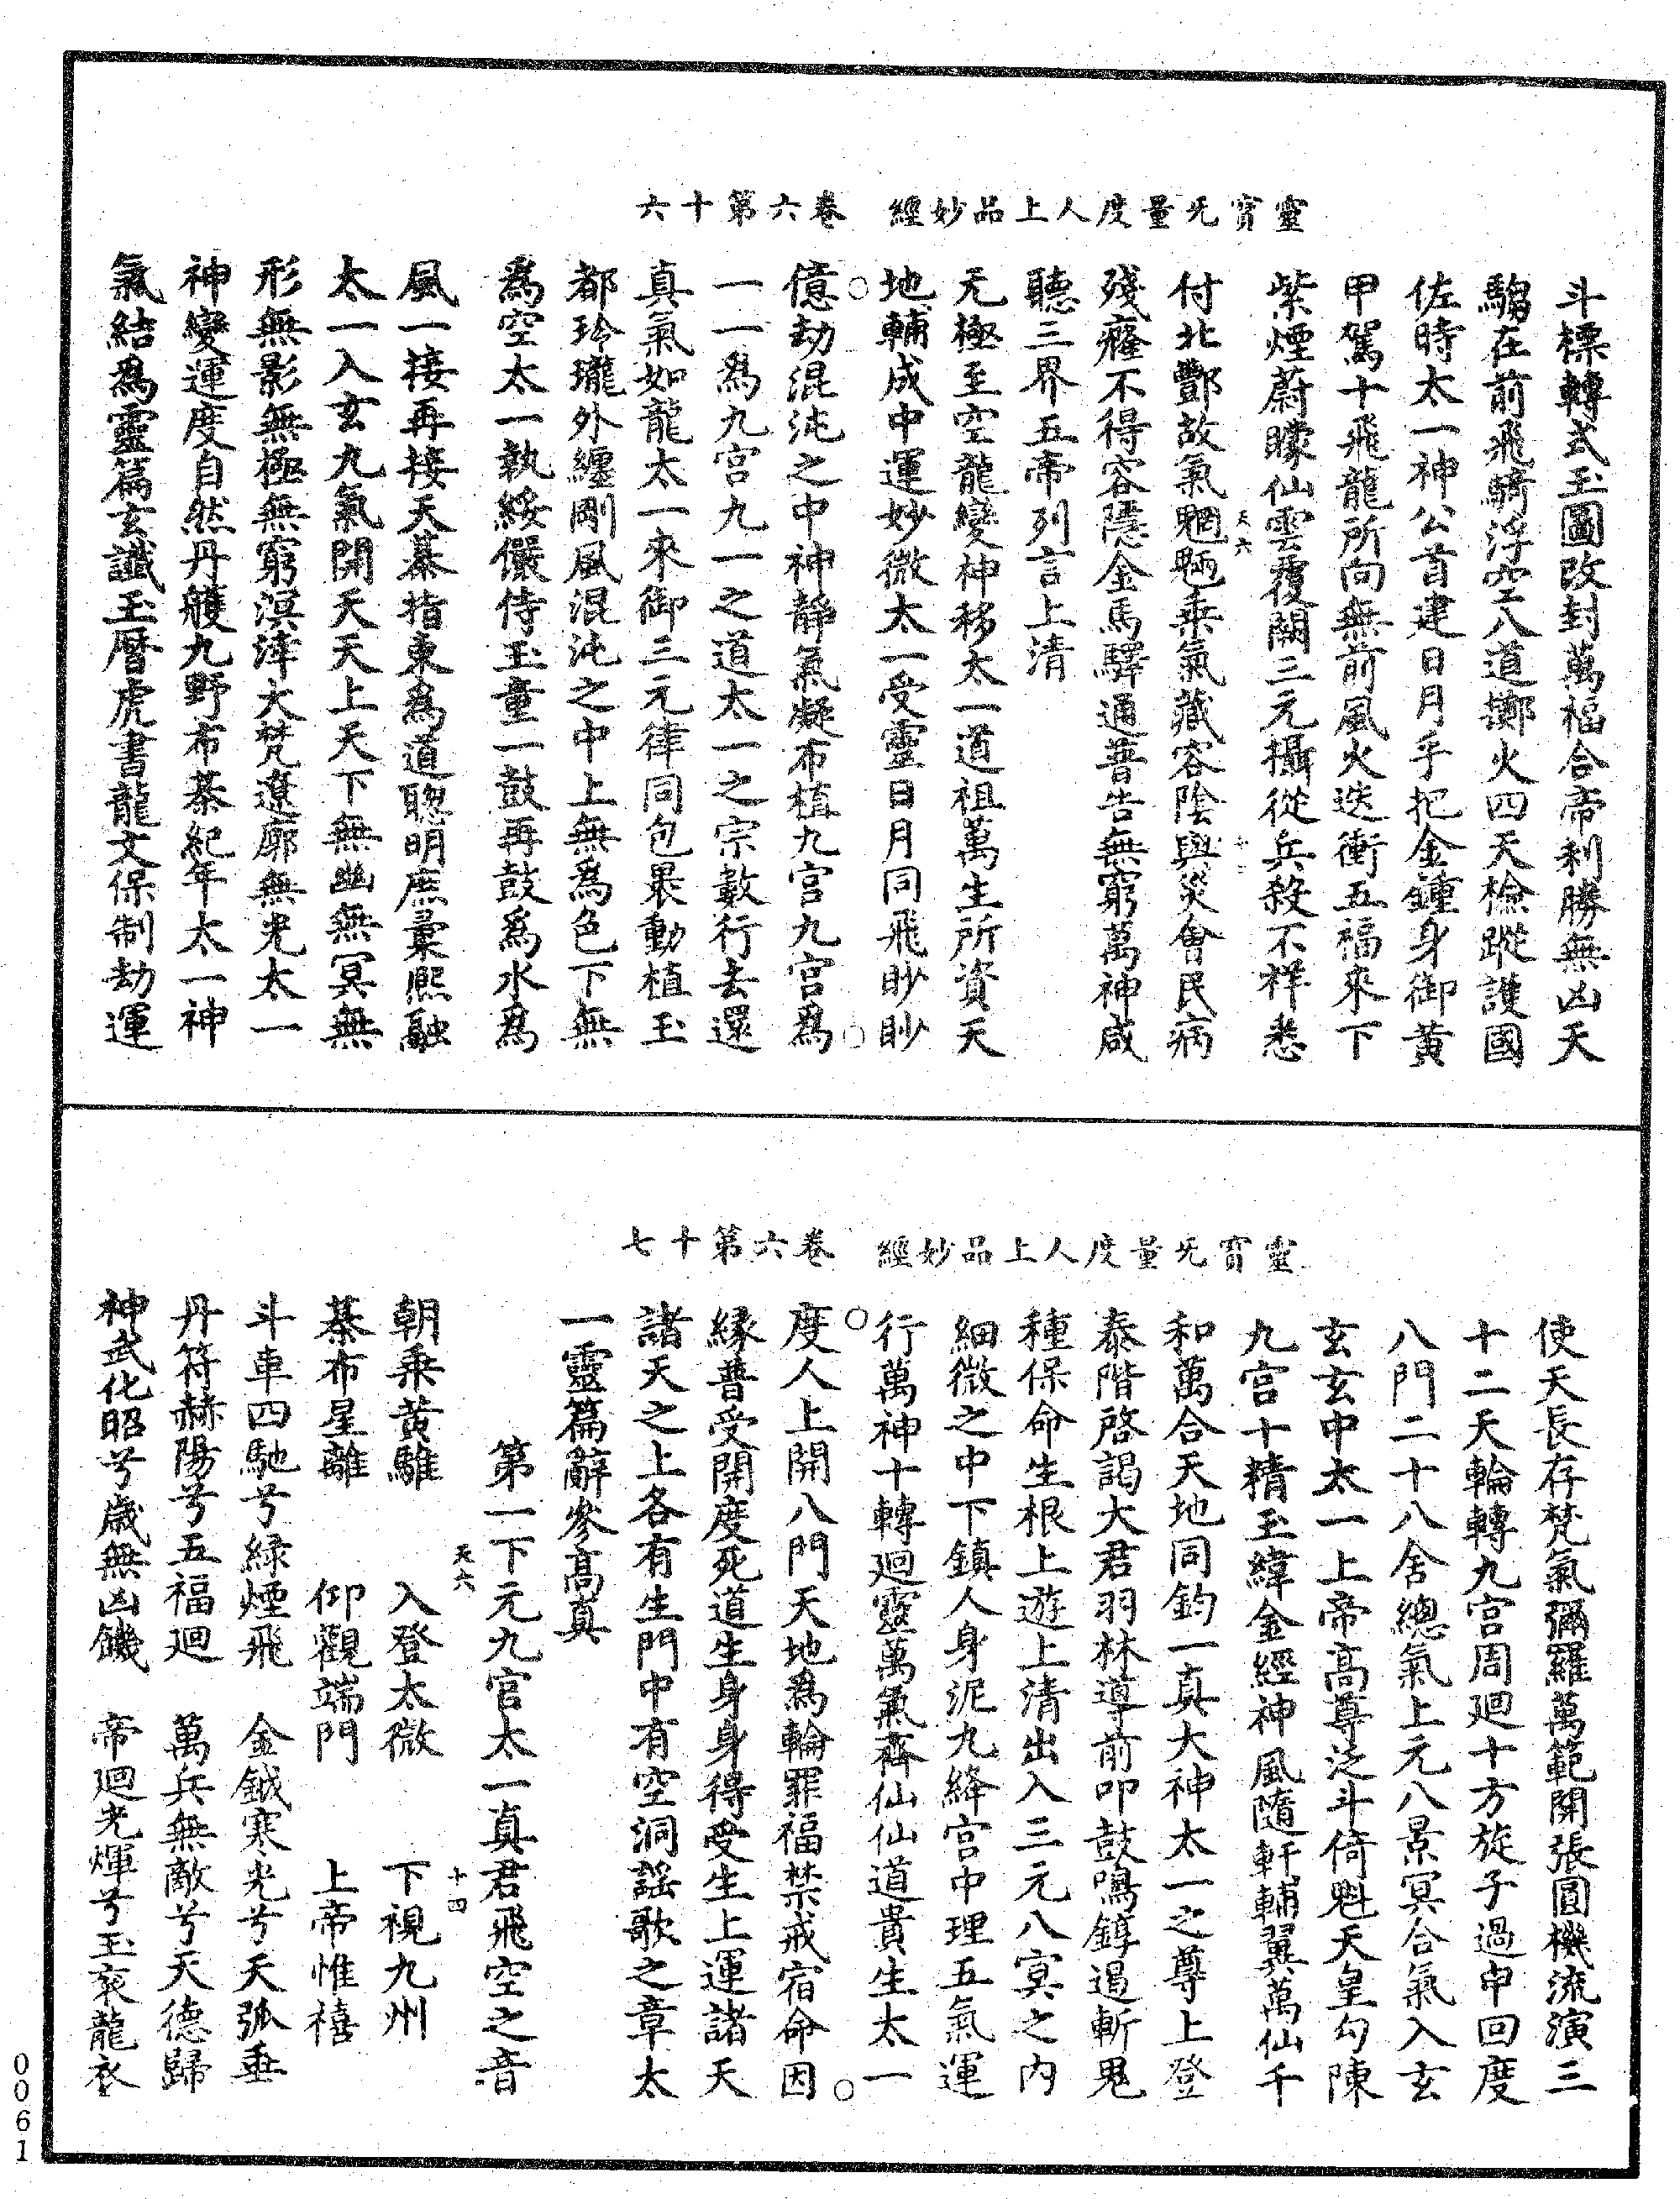 靈寶无量度人上品妙經　卷六第十六
斗標轉式玉圖改封萬福合帝利勝無凶天
騶在前飛騎浮空八道擲火四天檢蹤護國
佐時太一神公首建日月手把金鍾身御黃
甲駕十飛龍所向無前風火迭衝五福來下
紫煙蔚矇仙雲覆關三元攝從兵殺不祥悉
天六
付北酆故氣魍魎乗氣藏容陰興災會民病
殘癃不得容隱金馬驛通普告無窮萬神咸
聽三界五帝列言上清
无極至空龍變神移太一道祖萬生所資天
地輔成中運妙微太一受靈日月同飛眇眇
億劫混沌之中神靜氣凝布植九宫九宫爲
一一爲九宫九一之道太一之宗數行去還
真氣如龍太一來御三元律同包褁動植玉
都玲瓏外纏剛風混沌之中上無爲色下無
爲空太一執綏儼侍玉童一鼓再鼓爲水爲
風一接再接天綦指東爲道聦明庶彙熈融
太一入玄九氣開天天上天下無幽無冥無
形無影無極無窮溟涬大梵遼廓無光太一
神變運度自然丹艧九野布綦紀年太一神
氣結爲靈篇玄讖玉曆虎書龍文保制劫運
靈寶无量度人上品妙經　卷六第十七
使天長存梵氣彌羅萬範開張圓機流演三
十二天輪轉九宫周廻十方旋子過申回度
八門二十八舍總氣上元八景冥合氣入玄
玄玄中太一上帝高尊泛斗倚魁天皇勾陳
九宫十精玉緯金經神風隨軒輔翼萬仙千
和萬合天地同鈞一真大神太一之尊上登
泰階啓謁大君羽林導前叩鼓鳴錞遏斬鬼
種保命生根上遊上清出入三元八冥之内
細微之中下鎮人身泥九絳宫中理五氣運
行萬神十轉廻靈萬氣齊仙仙道貴生太一
度人上開八門天地爲輪罪福禁戒宿命因
緣普受開度死道生身身得受生上運諸天
諸天之上各有生門中有空洞謡歌之章太
一靈篇辭參高真
第一下元九宫太一真君飛空之音
天六
十四
朝乗黃騅　入登太微　下視九州
綦布星離　仰觀端門　上帝惟禧
斗車四馳兮緑煙飛　金鉞寒光兮天弧垂
丹符赫陽兮五福廻　萬兵無敵兮天德歸
神武化昭兮歲無凶饑　帝廻光煇兮玉衮龍衣
0061